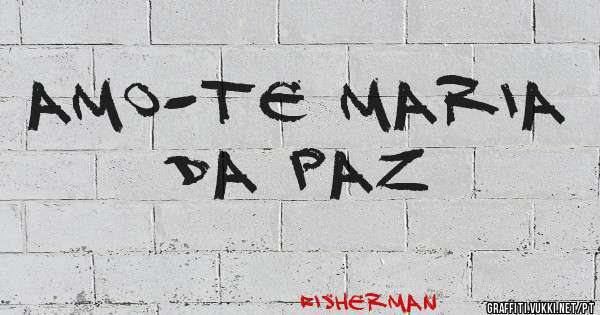 AMO-TE MARIA
DA PAZ
FISHERMAN
GRAFFITI.VUKKI.NET/PT